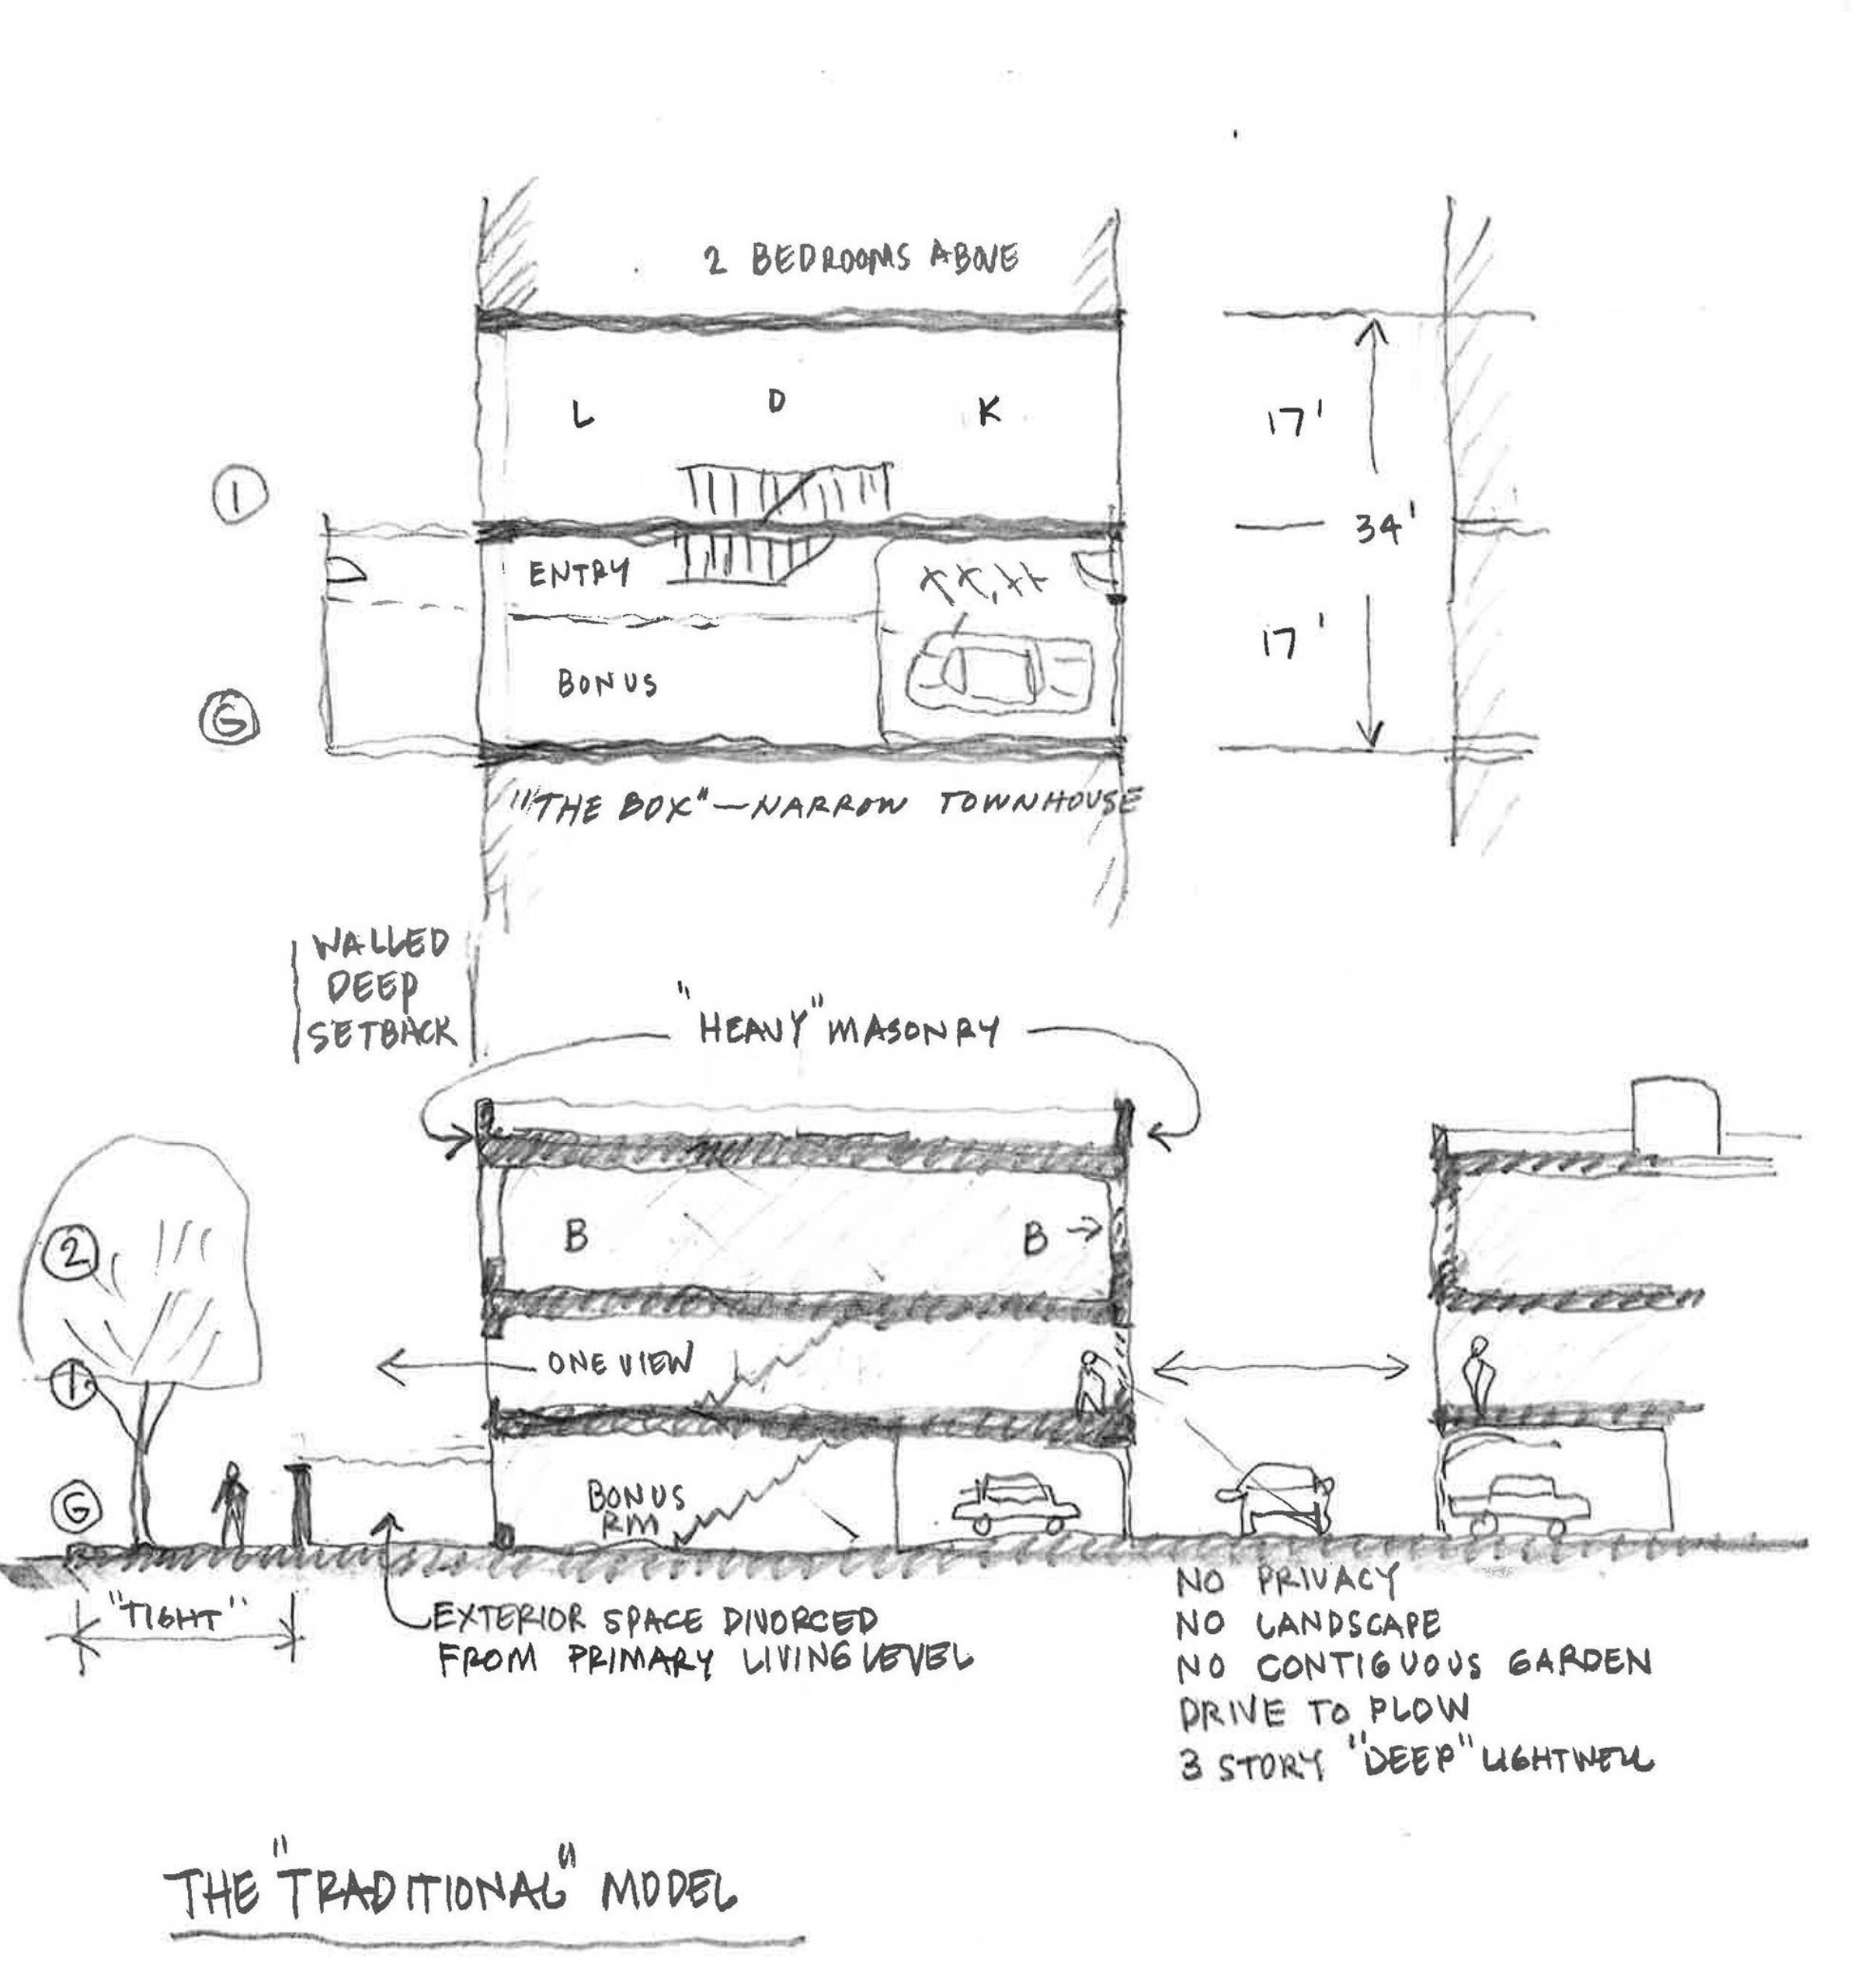 2 BEDROOMS ABOVE
L D K
17'
1
34'
ENTRY
17'
BONUS
G
"THE BOX" — NARROW TOWNHOUSE
WALLED
DEEP
SETBACK
"HEAVY" MASONRY
2
B
B
1
ONE VIEW
G
BONUS
RM
"TIGHT"
EXTERIOR SPACE DIVORCED
FROM PRIMARY LIVING LEVEL
NO PRIVACY
NO LANDSCAPE
NO CONTIGUOUS GARDEN
DRIVE TO PLOW
3 STORY "DEEP" LIGHTWELL
THE "TRADITIONAL" MODEL